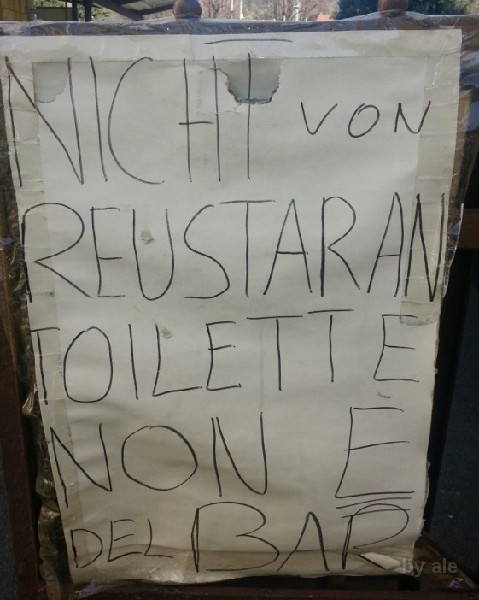 NICHT VON
REUSTARAN
TOILETTE
NON È
DEL BAR
by ale